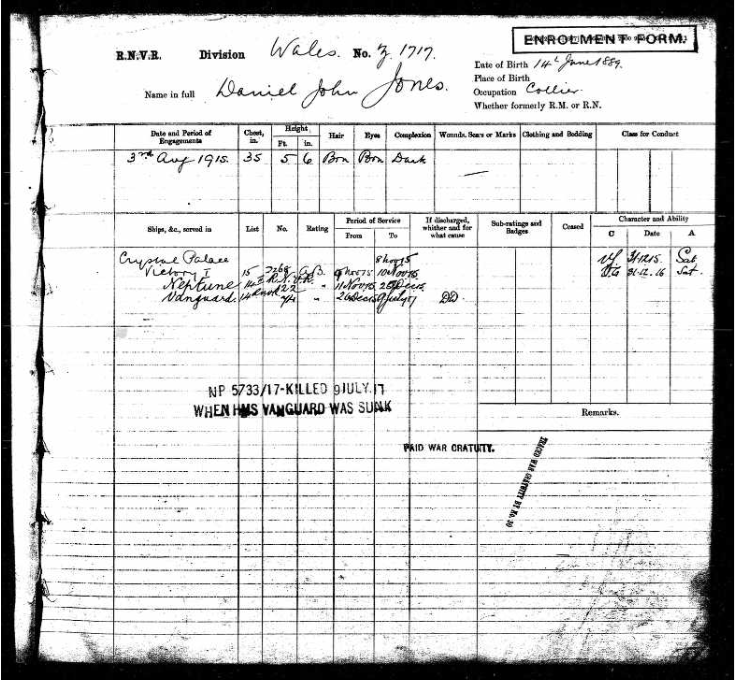 ENROLMENT FORM.
R.N.V.R. Division Wales. No. Z 1717.
Date of Birth 14th June 1889.
Place of Birth
Name in full Daniel John Jones.
Occupation Collier
Whether formerly R.M. or R.N.
Date and Period of Engagements Chest, in. Height, Ft. in. Hair Eyes Complexion Wounds, Scars or Marks Clothing and Bedding Class for Conduct
3rd Aug 1915. 35 5 6 Brn Brn Dark —
Ships, &c., served in List No. Rating Period of Service From To If discharged, whither and for what cause Sub-ratings and Badges Ceased Character and Ability C Date A
Crystal Palace 8 Nov 15 VG 31.12.15 Sat
Victory I 15 A.B. 9 Nov 15 10 Nov 15 VG 31-12-16 Sat.
Neptune R.N.V.R. " 11 Nov 15
Vanguard " 9 July 17 DD.
NP 5733/17-KILLED 9 JULY.17
WHEN HMS VANGUARD WAS SUNK
Remarks.
PAID WAR GRATUITY.
TRACED WAR GRATUITY